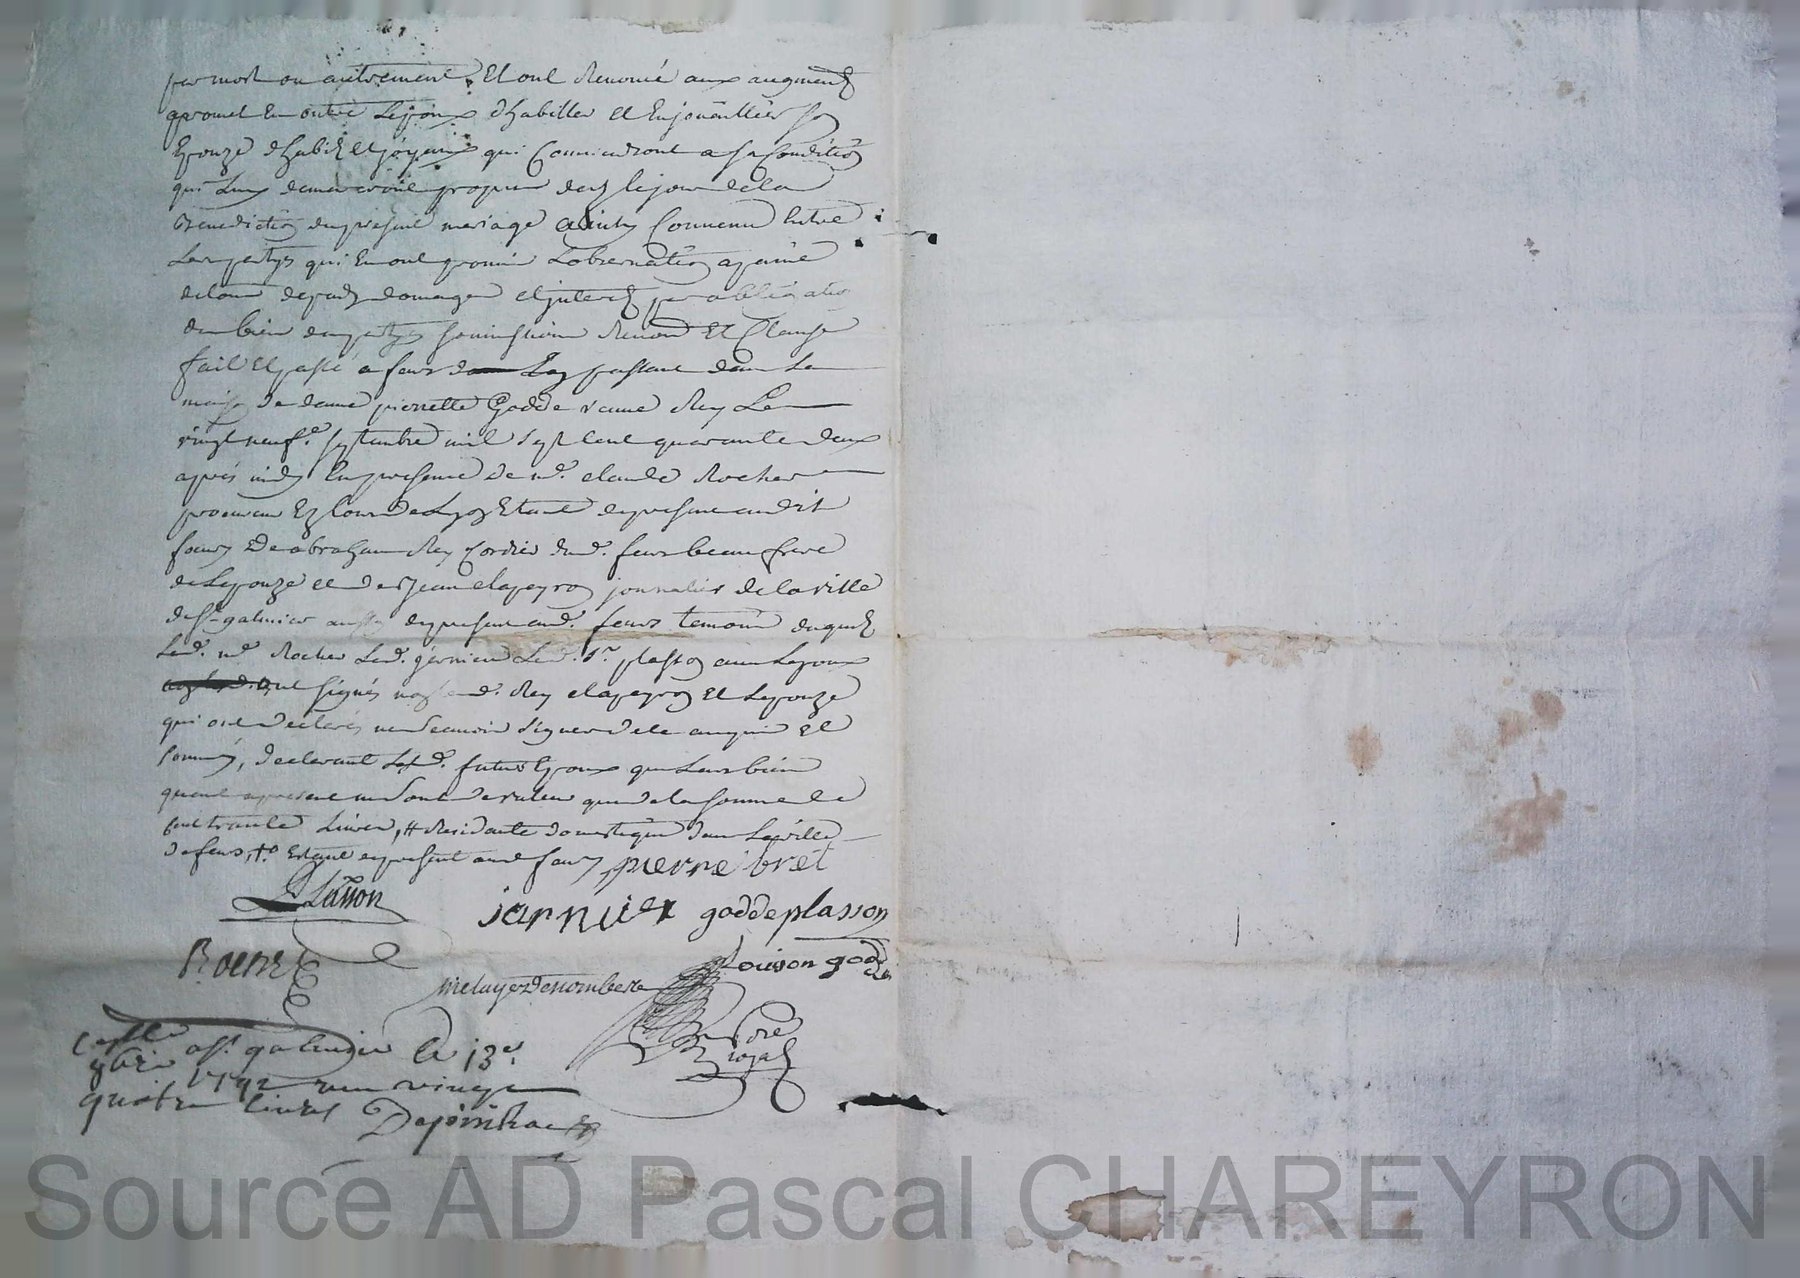 par mort ou autrement, Et ont Renoncé aux augment
promet En outre Lepoux d'habiller Et Enjouailler sa
Epouze d'habitz Et joyaux qui Conviendront a sa Condition
qui Luy demeureront propres dez le jour de la
Benediction du present mariage ainsy Convenu Entre
Les partyes qui En ont promis Lobservation a peine
de tous depens domages et interets par obligation
de biens soumissions Renon Et Clause
fait Et passé a feurs En passant dans La
maison de dame pierrette Godde veuve Rey Le
vingt neufe septembre mil sept cent quarante deux
après midy En presence de me. claude Rocher
procureur Ez Cour de Lyon Etant de present audit
feurs De abraham Rey Cordier dud. feurs beau frere
de Lepouze et de jean clapeyron journalier de la ville
de st galmier aussy de present aud. feurs temoins
Led. me Rocher Led. jernieu Led. sr. plasson avec Lepoux
ont signés non Led. Rey clapeyron Et Lepouze
qui ont declarés ne sçavoir signer de ce enquis Et
sommés, declarant Lesd. futurs Epoux que Leurs biens
quant apresent ne sont de valeur que de la somme de
cent trante Livres, # Residante domestique dans La ville
de feurs, to Estant de present aud feurs pierre bret
Plasson
jarnieu goddeplasson
Rocher
Louison godde
melayer Denombere
Nre
royal
Conllé a st galmier le 13e
9bre 1742 reçu vingt
quatre livres Depinhac
Source AD Pascal CHAREYRON